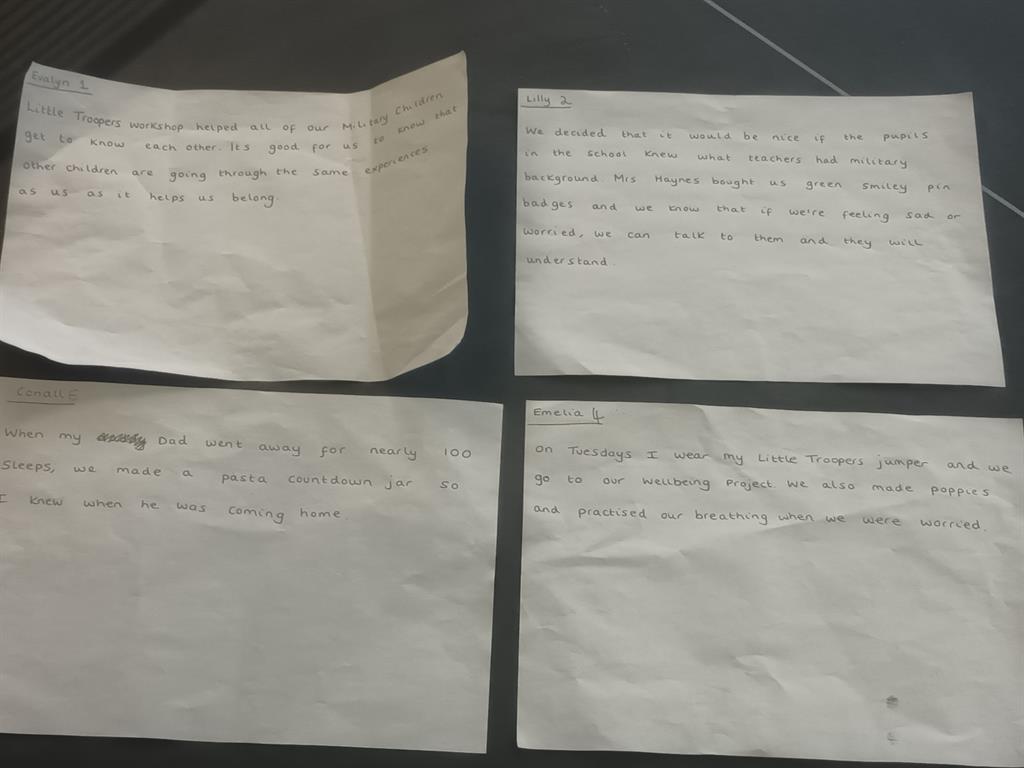 Evalyn 1
Little Troopers workshop helped all of our Military Children
get to know each other. Its good for us to know that
other children are going through the same experiences
as us as it helps us belong.
Lilly 2
We decided that it would be nice if the pupils
in the school knew what teachers had military
background. Mrs Haynes bought us green smiley pin
badges and we know that if we're feeling sad or
worried, we can talk to them and they will
understand.
Conall
When my Dad went away for nearly 100
sleeps, we made a pasta countdown jar so
I knew when he was coming home.
Emelia 4
On Tuesdays I wear my Little Troopers jumper and we
go to our Wellbeing Project. We also made poppies
and practised our breathing when we were worried.